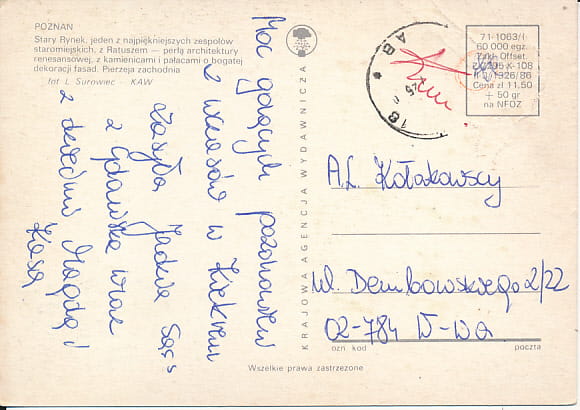 POZNAŃ
Stary Rynek, jeden z najpiękniejszych zespołów
staromiejskich, z Ratuszem — perłą architektury
renesansowej, z kamienicami i pałacami o bogatej
dekoracji fasad. Pierzeja zachodnia
fot L. Surowiec — KAW
Moc gorących pozdrowień
z wczasów w Kiekrzu
zasyła Jadwiga
z Gdańska wraz
z dziećmi Magdą i
Kasią
KRAJOWA AGENCJA WYDAWNICZA
71-1063/I
60 000 egz.
Zakł. Offset.
Cena zł 11,50
+ 50 gr
na NFOZ
A.L. Kołakowscy
ul. Dembowskiego 2/22
02-784 W-wa
ozn. kod poczta
Wszelkie prawa zastrzeżone